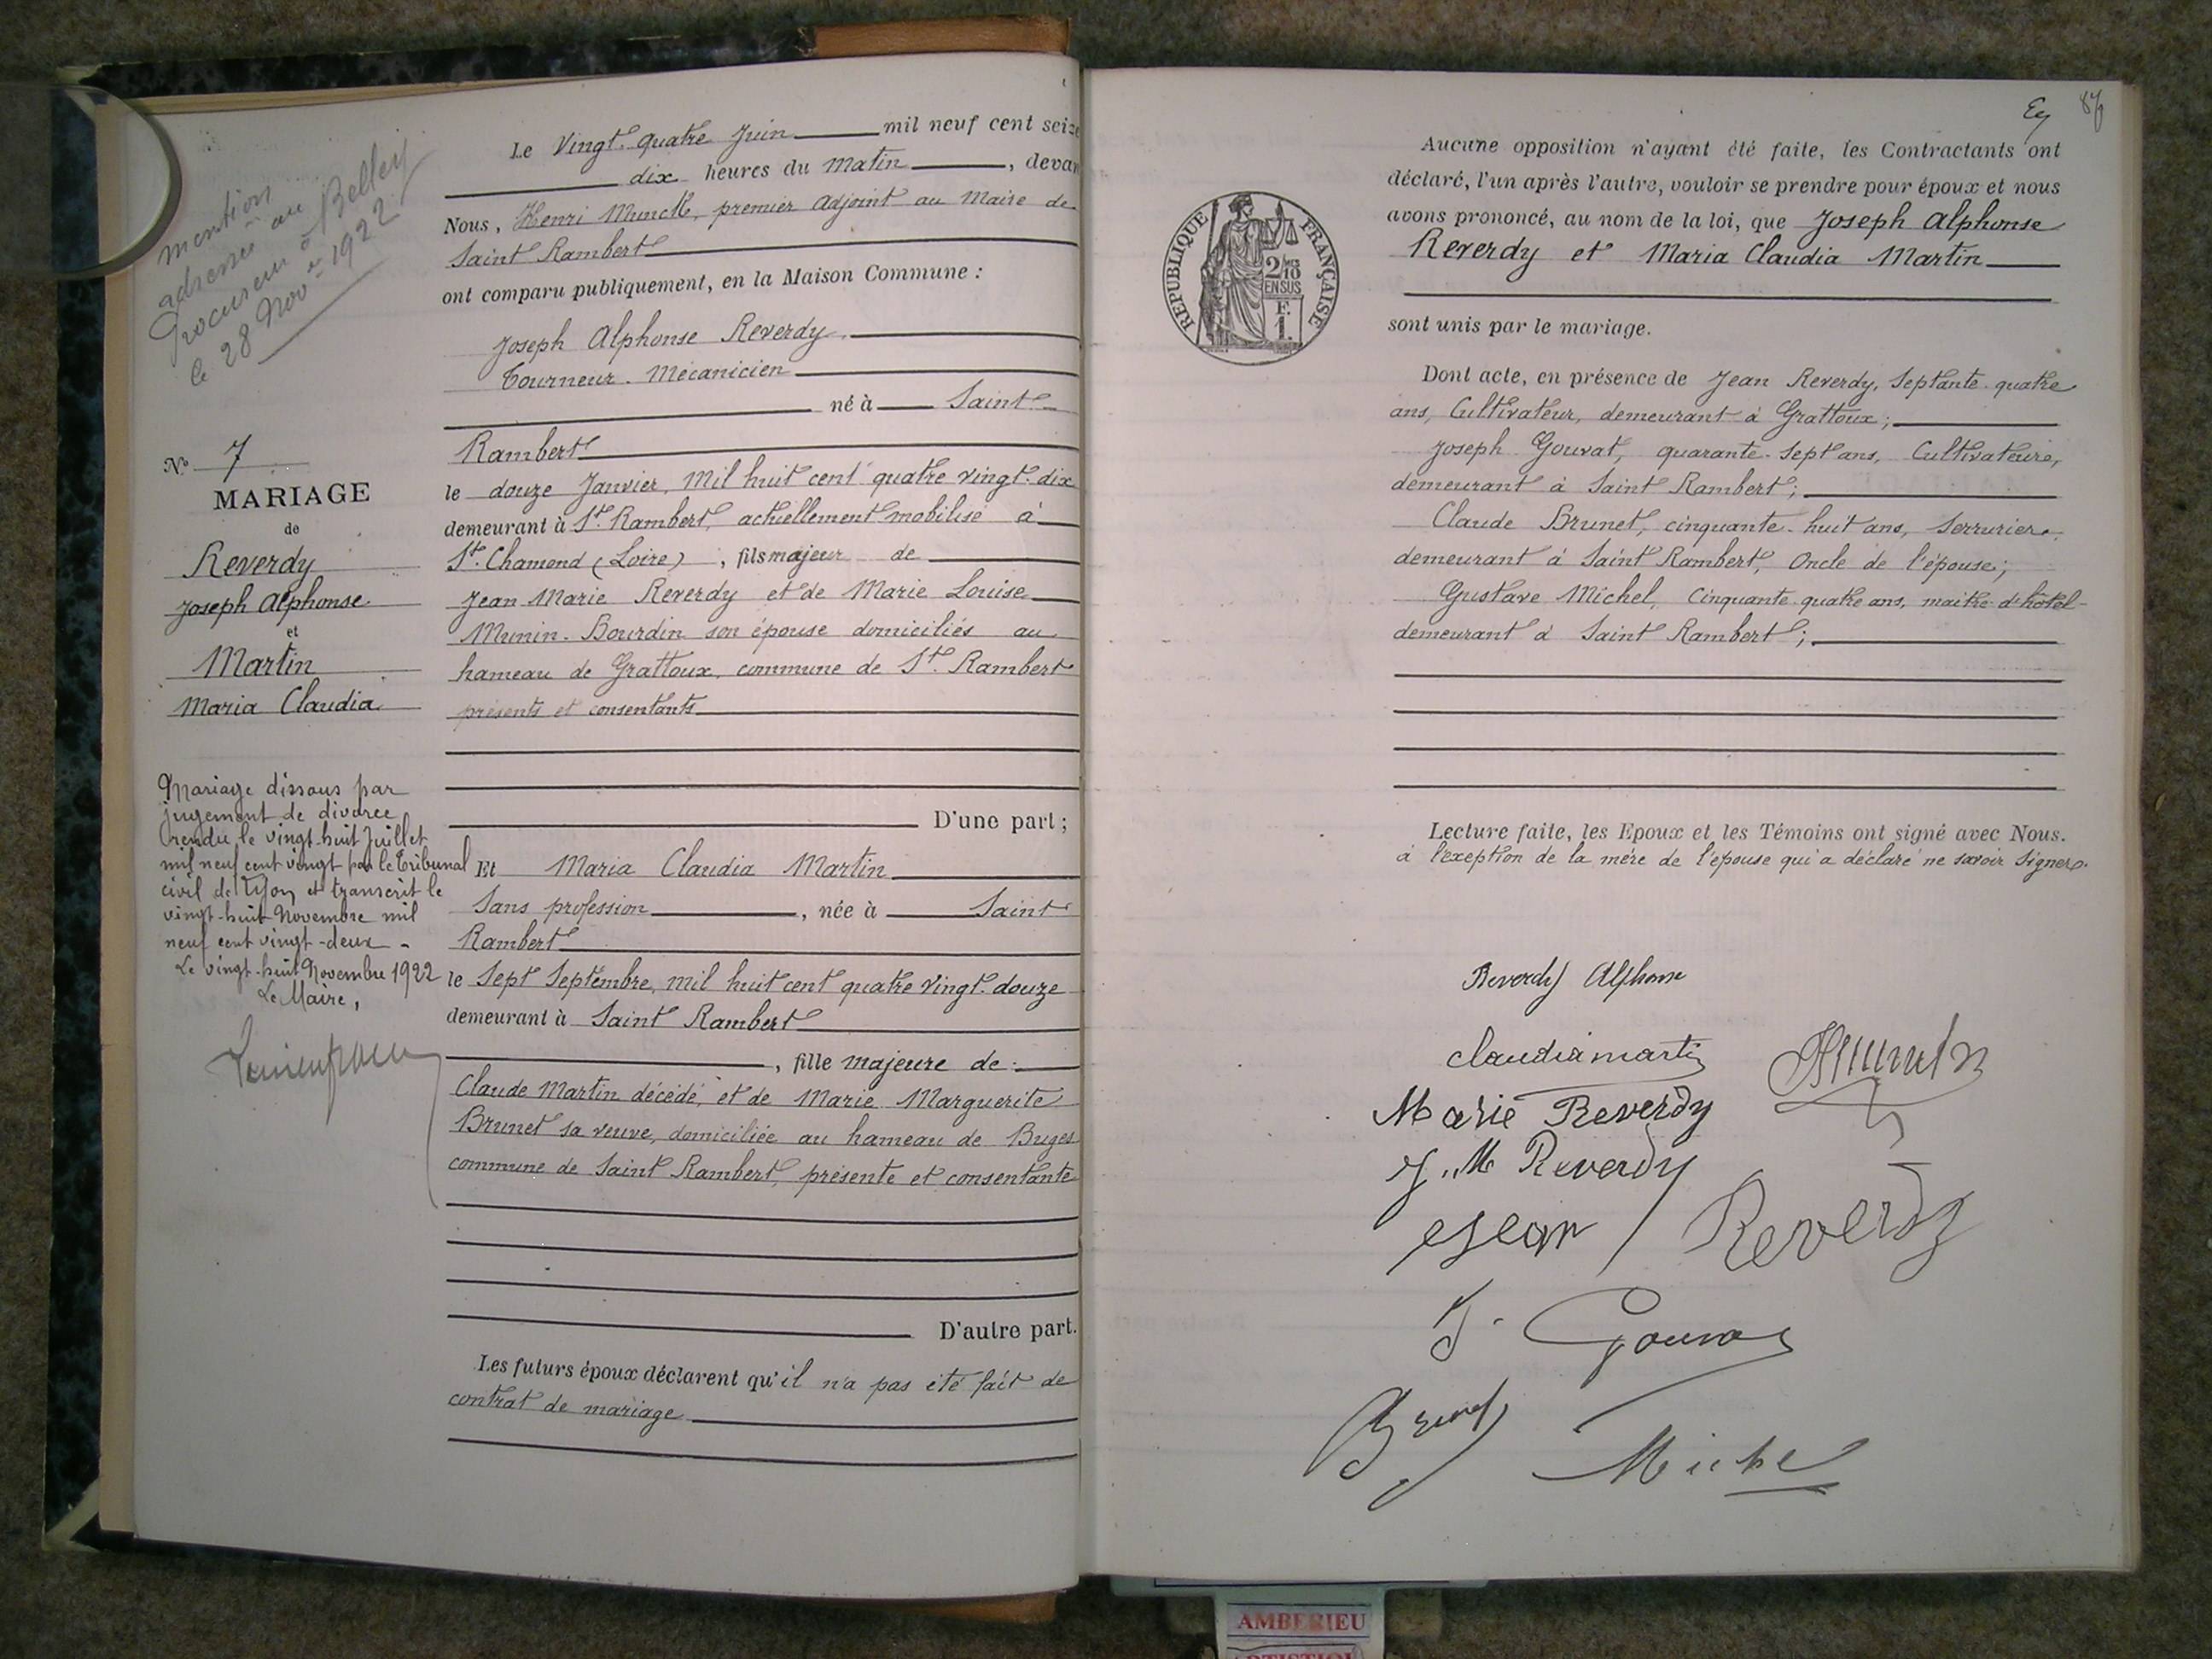 mention
adressée au
Procureur à Belley
le 28 Nov re 1922
N° 7
MARIAGE
de
Reverdy
Joseph Alphonse
et
Martin
Maria Claudia
Mariage dissous par
jugement de divorce
rendu le vingt-huit Juillet
mil neuf cent vingt par le Tribunal
civil de Lyon et transcrit le
vingt-huit Novembre mil
neuf cent vingt-deux -
Le vingt-huit Novembre 1922
Le Maire,
Le Vingt-quatre Juin mil neuf cent seize
dix heures du Matin, devan
Nous, Henri Munck, premier adjoint au Maire de
Saint Rambert
ont comparu publiquement, en la Maison Commune :
Joseph Alphonse Reverdy
Tourneur-Mécanicien
né à Saint-
Rambert
le douze Janvier, Mil huit cent quatre vingt-dix
demeurant à St. Rambert, actuellement mobilisé à
St. Chamond (Loire), fils majeur de
Jean Marie Reverdy et de Marie Louise
Munin-Bourdin son épouse domiciliés au
hameau de Grattoux, commune de St. Rambert
présents et consentants
D'une part ;
Et Maria Claudia Martin
Sans profession, née à Saint
Rambert
le Sept Septembre, mil huit cent quatre vingt-douze
demeurant à Saint Rambert
, fille majeure de :
Claude Martin décédé, et de Marie Marguerite
Brunet sa veuve, domiciliée au hameau de Buges
commune de Saint Rambert, présente et consentante
D'autre part.
Les futurs époux déclarent qu'il n'a pas été fait de
contrat de mariage
Ey 87
RÉPUBLIQUE FRANÇAISE
2/10
EN SUS
F.
1.
Aucune opposition n'ayant été faite, les Contractants ont
déclaré, l'un après l'autre, vouloir se prendre pour époux et nous
avons prononcé, au nom de la loi, que Joseph Alphonse
Reverdy et Maria Claudia Martin
sont unis par le mariage.
Dont acte, en présence de Jean Reverdy, Septante-quatre
ans, Cultivateur, demeurant à Grattoux;
Joseph Gouvat, quarante-sept ans, Cultivateur,
demeurant à Saint Rambert;
Claude Brunet, cinquante-huit ans, Serrurier,
demeurant à Saint Rambert, Oncle de l'épouse;
Gustave Michel, Cinquante quatre ans, maître-d'hôtel-
demeurant à Saint Rambert;
Lecture faite, les Epoux et les Témoins ont signé avec Nous.
à l'exeption de la mère de l'épouse qui a déclaré ne savoir signer.
Reverdy Alphonse
claudia martin
HMunck
Marie Reverdy
J. M Reverdy
Jean Reverdy
J. Gouvat
Brunet
Michel
AMBERIEU